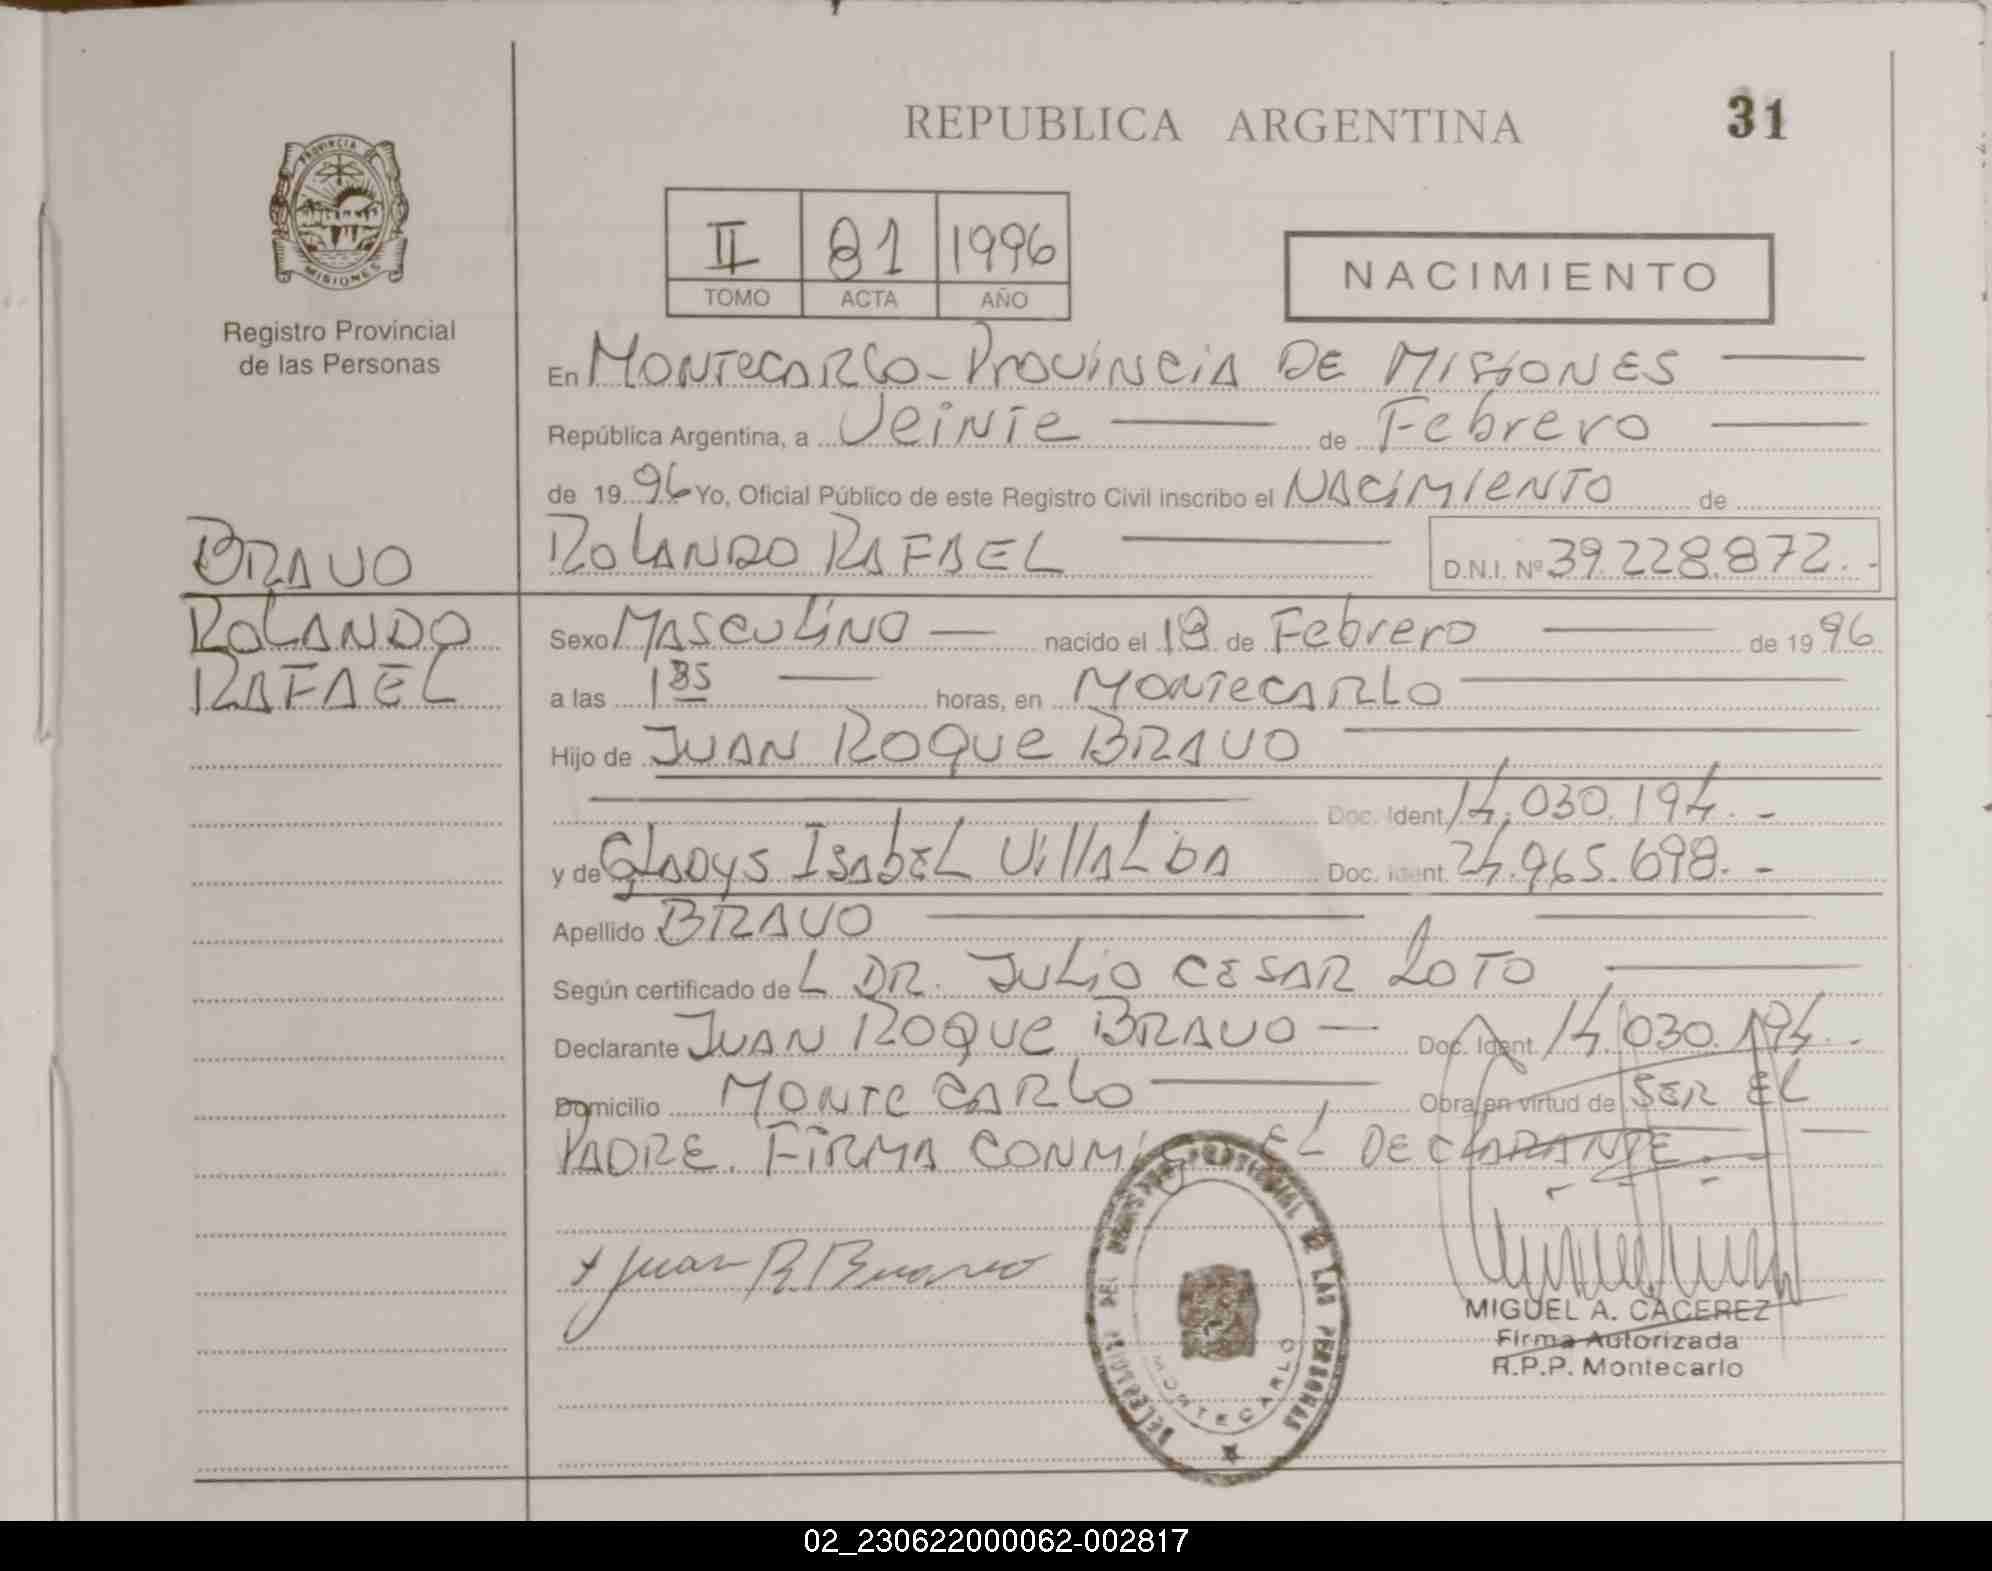 REPUBLICA ARGENTINA
31
PROVINCIA DE
MISIONES
Registro Provincial
de las Personas
II 81 1996
TOMO ACTA AÑO
NACIMIENTO
En MONTECARLO - PROVINCIA DE MISIONES
República Argentina, a Veinte de Febrero
de 19 96 Yo, Oficial Público de este Registro Civil inscribo el NACIMIENTO de
BRAVO
ROLANDO RAFAEL D.N.I. Nº 39.228.872.-
ROLANDO
RAFAEL
Sexo MASCULINO nacido el 18 de Febrero de 19 96
a las 1 35 horas, en MONTECARLO
Hijo de JUAN ROQUE BRAVO
Doc. Ident. 14.030.194.-
y de GLADYS ISABEL VILLALBA Doc. Ident. 24.965.698.-
Apellido BRAVO
Según certificado de L DR. JULIO CESAR LOTO
Declarante JUAN ROQUE BRAVO Doc. Ident. 14.030.194.-
Domicilio MONTECARLO Obra en virtud de SER EL
PADRE. FIRMA CONMIGO EL DECLARANTE.
Juan R Bravo
REGISTRO PROVINCIAL DE LAS PERSONAS
MONTECARLO
MIGUEL A. CACEREZ
Firma Autorizada
R.P.P. Montecarlo
02_230622000062-002817